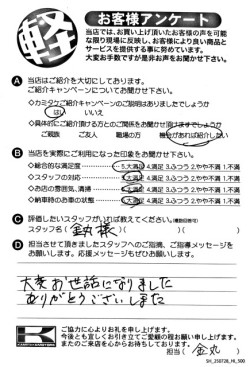 軽
お客様アンケート
当店では、お買い上げ頂いたお客様の声を可能
な限り現場に反映し、お客様により良い商品と
サービスを提供する事に努めています。
大変お手数ですが是非お声をお聞かせ下さい。
A 当店はご紹介を大切にしております。
ご紹介キャンペーンについてお聞かせ下さい。
◇カミタケご紹介キャンペーンのご説明はありましたでしょうか
はい いいえ
◇具体的にご紹介頂ける方とのご関係をお聞かせ頂けますでしょうか
ご親族 ご友人 職場の方 機会があれば紹介したい
B 当店を実際にご利用になった印象をお聞かせ下さい。
◇総合的な満足度 5.大満足 4.満足 3.ふつう 2.やや不満 1.不満
◇スタッフの対応 5.大満足 4.満足 3.ふつう 2.やや不満 1.不満
◇お店の雰囲気、清掃 5.大満足 4.満足 3.ふつう 2.やや不満 1.不満
◇納車時のお車の状態 5.大満足 4.満足 3.ふつう 2.やや不満 1.不満
C 評価したいスタッフがいれば教えてください。(複数回答可)
スタッフ名( 金丸様 )( )
D 担当させて頂きましたスタッフへのご指摘、ご指導メッセージを
お願いします。応援メッセージもぜひお願いします。
大変お世話になりました
ありがとうございました
ご協力に心よりお礼を申し上げます。
今後とも宜しくお引き立てご愛顧の程お願い申し上げます。
またのご来店を心からお待ちしております。
担当( 金丸 )